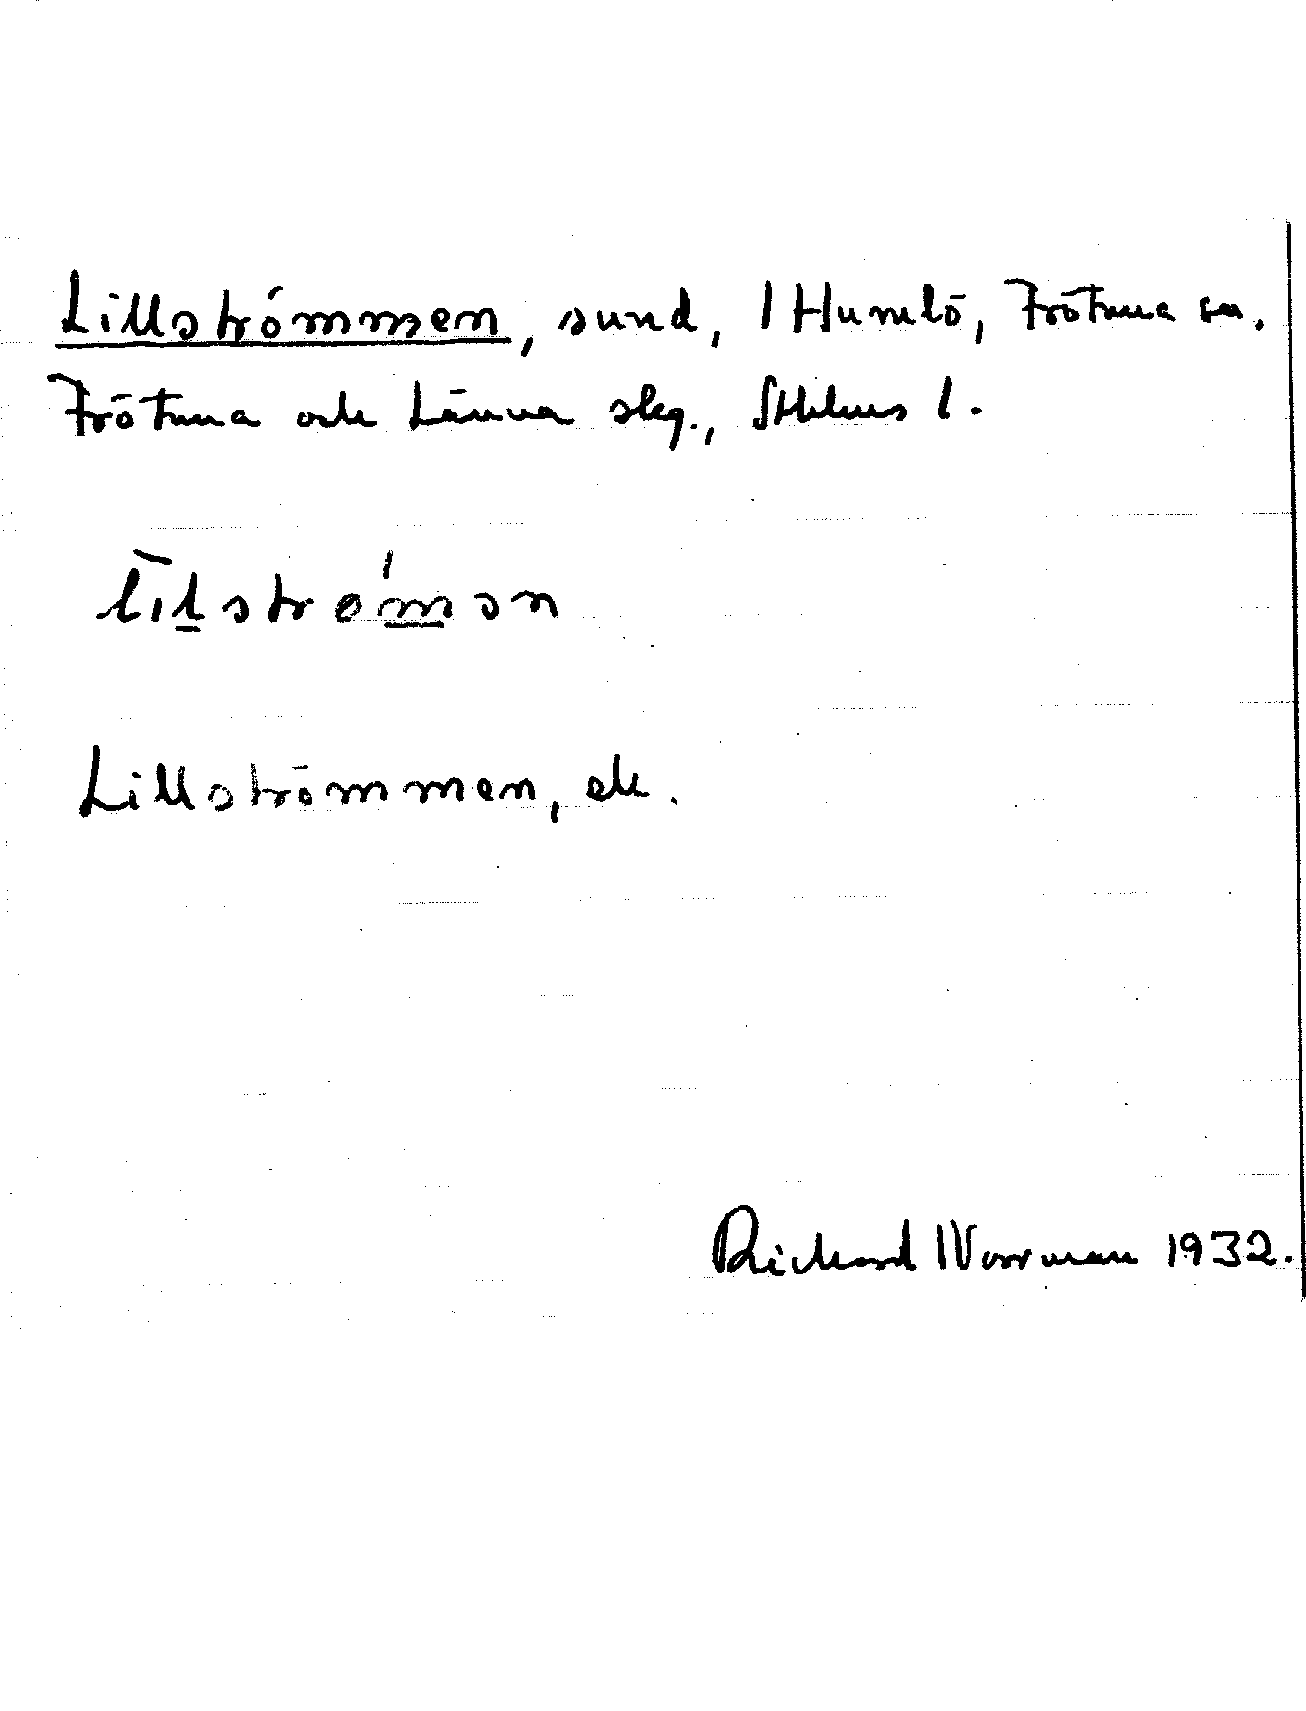 Lillströmmen, sund, / Humlö, Frötuna sn.
Frötuna och Länna skg., Sthlms l.
Lillströmmen, ek.
Richard Norrman 1932.